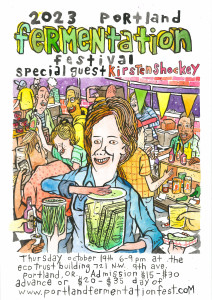 2023 Portland
fermentation
festival
special guest Kirsten Shockey
Thursday october 19th 6-9 pm at the
ecoTrust building 721 N.W. 9th ave.
Portland, OR. Admission $15-$30
advance or $20-$35 day of
www.portlandfermentationfest.com